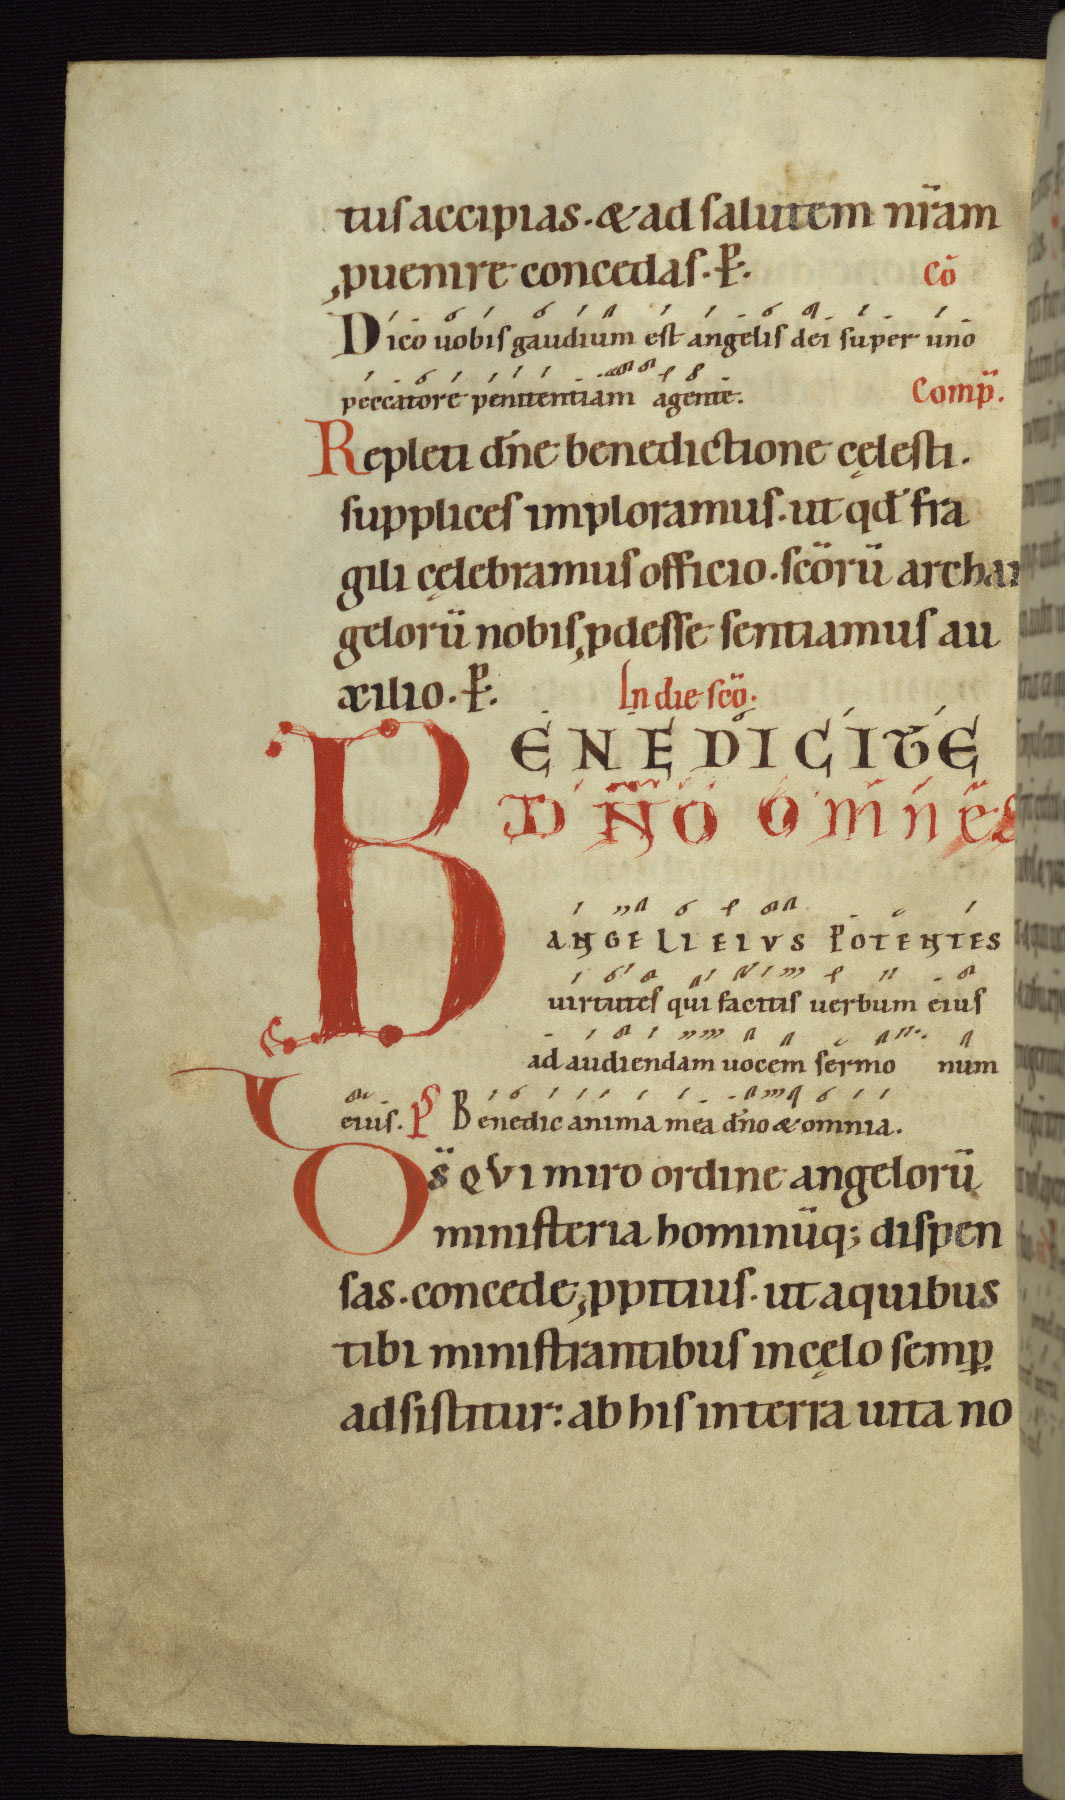 tus accipias. & ad salutem nr̄am
puenire concedas. P. Cō
Dico uobis gaudium est angelis dei super uno
peccatore penitentiam agente. Comp̄.
Repleti dn̄e benedictione cęlesti.
supplices imploramus. ut qd̄ fra
gili cęlebramus officio. scōrū archan
gelorū nobis pdesse sentiamus au
xilio. P. In die scō.
BENEDICITE
DN̄O OMNES
ANGELI EIVS POTENTES
uirtutes qui facitis uerbum eius
ad audiendam uocem sermo num
eius. Ps Benedic anima mea dn̄o & omnia.
Ds̄ QVI miro ordine angelorū
ministeria hominūq; dispen
sas. concede ppitius. ut a quibus
tibi ministrantibus in cęlo semp̄
adsistitur: ab his in terra uita no